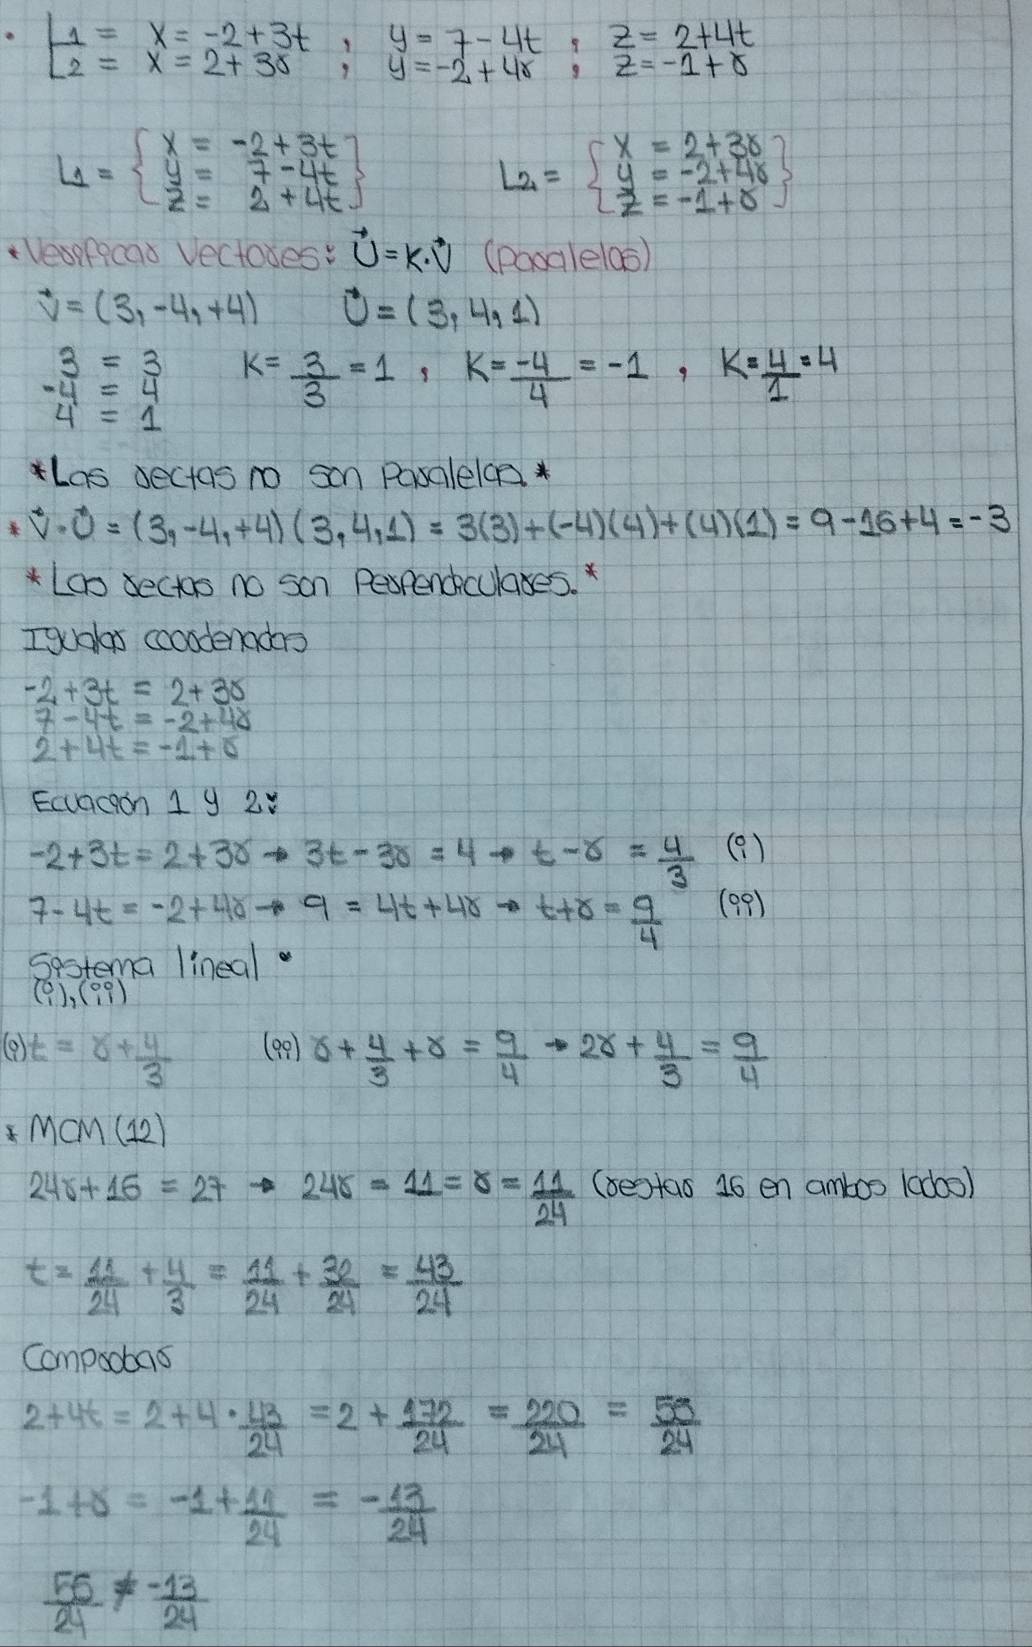 • L1 = x = -2+3t ; y = 7-4t ; z = 2+4t
L2 = x = 2+3r ; y = -2+4r ; z = -1+r
L1 = { x = -2+3t
y = 7-4t
z = 2+4t }
L2 = { x = 2+3r
y = -2+4r
z = -1+r }
• Verificar vectores: U⃗ = K·V⃗ (Paralelas)
v⃗ = (3, -4, +4) U⃗ = (3, 4, 1)
3 = 3
-4 = 4
4 = 1
K = 3/3 = 1 , K = -4/4 = -1 , K = 4/1 = 4
*Las rectas no son Paralelas.*
* v⃗·U⃗ = (3, -4, +4) (3, 4, 1) = 3(3)+(-4)(4)+(4)(1) = 9-16+4 = -3
*Las rectas no son Perpendiculares.*
Igualar coordenadas
-2+3t = 2+3r
7-4t = -2+4r
2+4t = -1+r
Ecuación 1 y 2:
-2+3t = 2+3r → 3t-3r = 4 → t-r = 4/3 (i)
7-4t = -2+4r → 9 = 4t+4r → t+r = 9/4 (ii)
Sistema lineal •
(i),(ii)
(i) t = r+4/3 (ii) r+4/3+r = 9/4 → 2r+4/3 = 9/4
* MCM (12)
24r+16 = 27 → 24r = 11 = r = 11/24 (restar 16 en ambos lados)
t = 11/24 + 4/3 = 11/24 + 32/24 = 43/24
Comprobar
2+4t = 2+4·43/24 = 2+172/24 = 220/24 = 55/24
-1+r = -1+11/24 = -13/24
55/24 ≠ -13/24